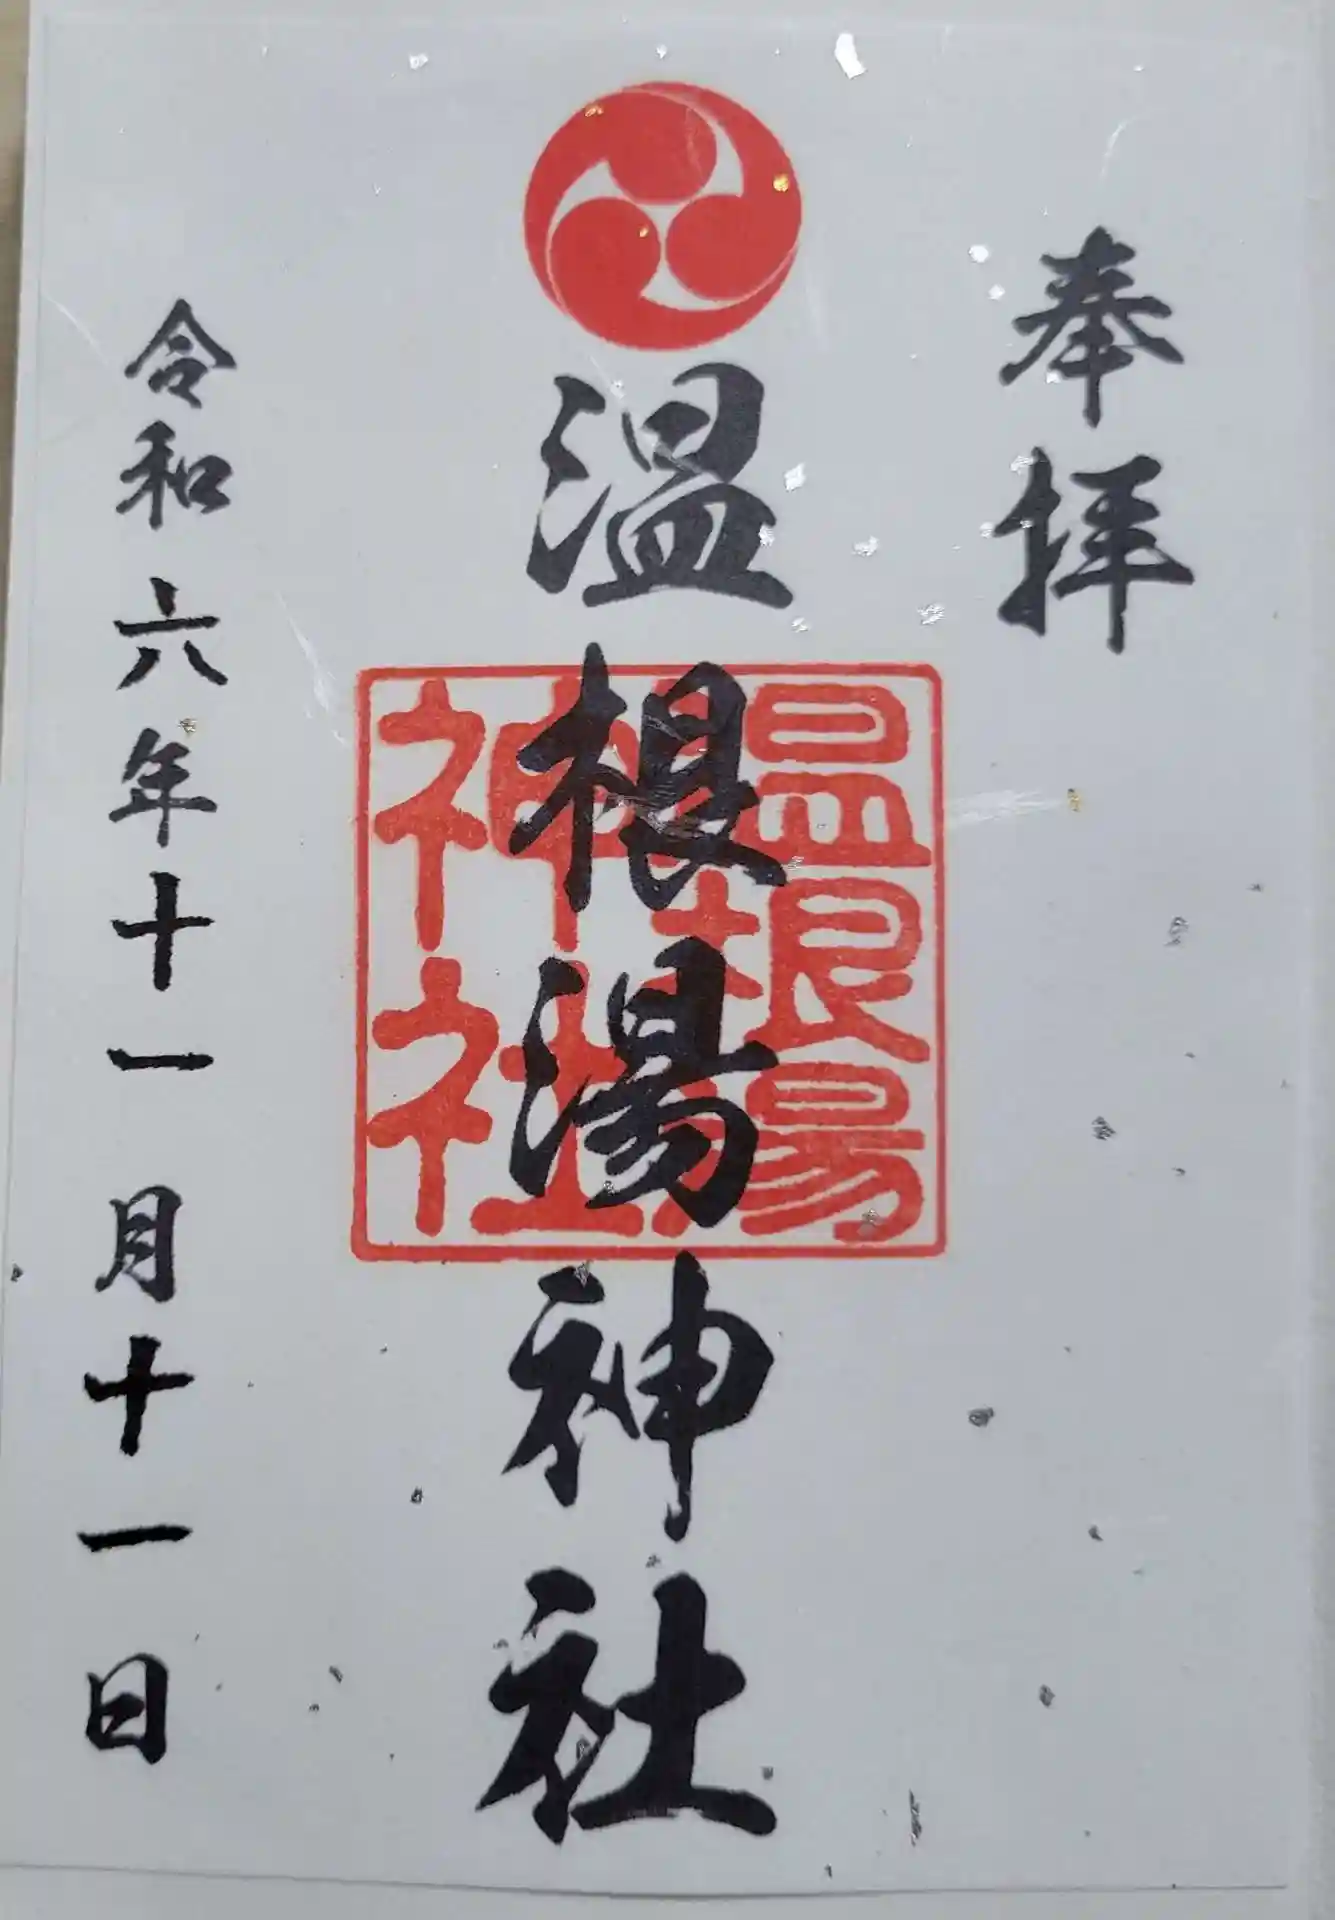 奉拝
温根湯神社
温根湯
神社
令和六年十一月十一日